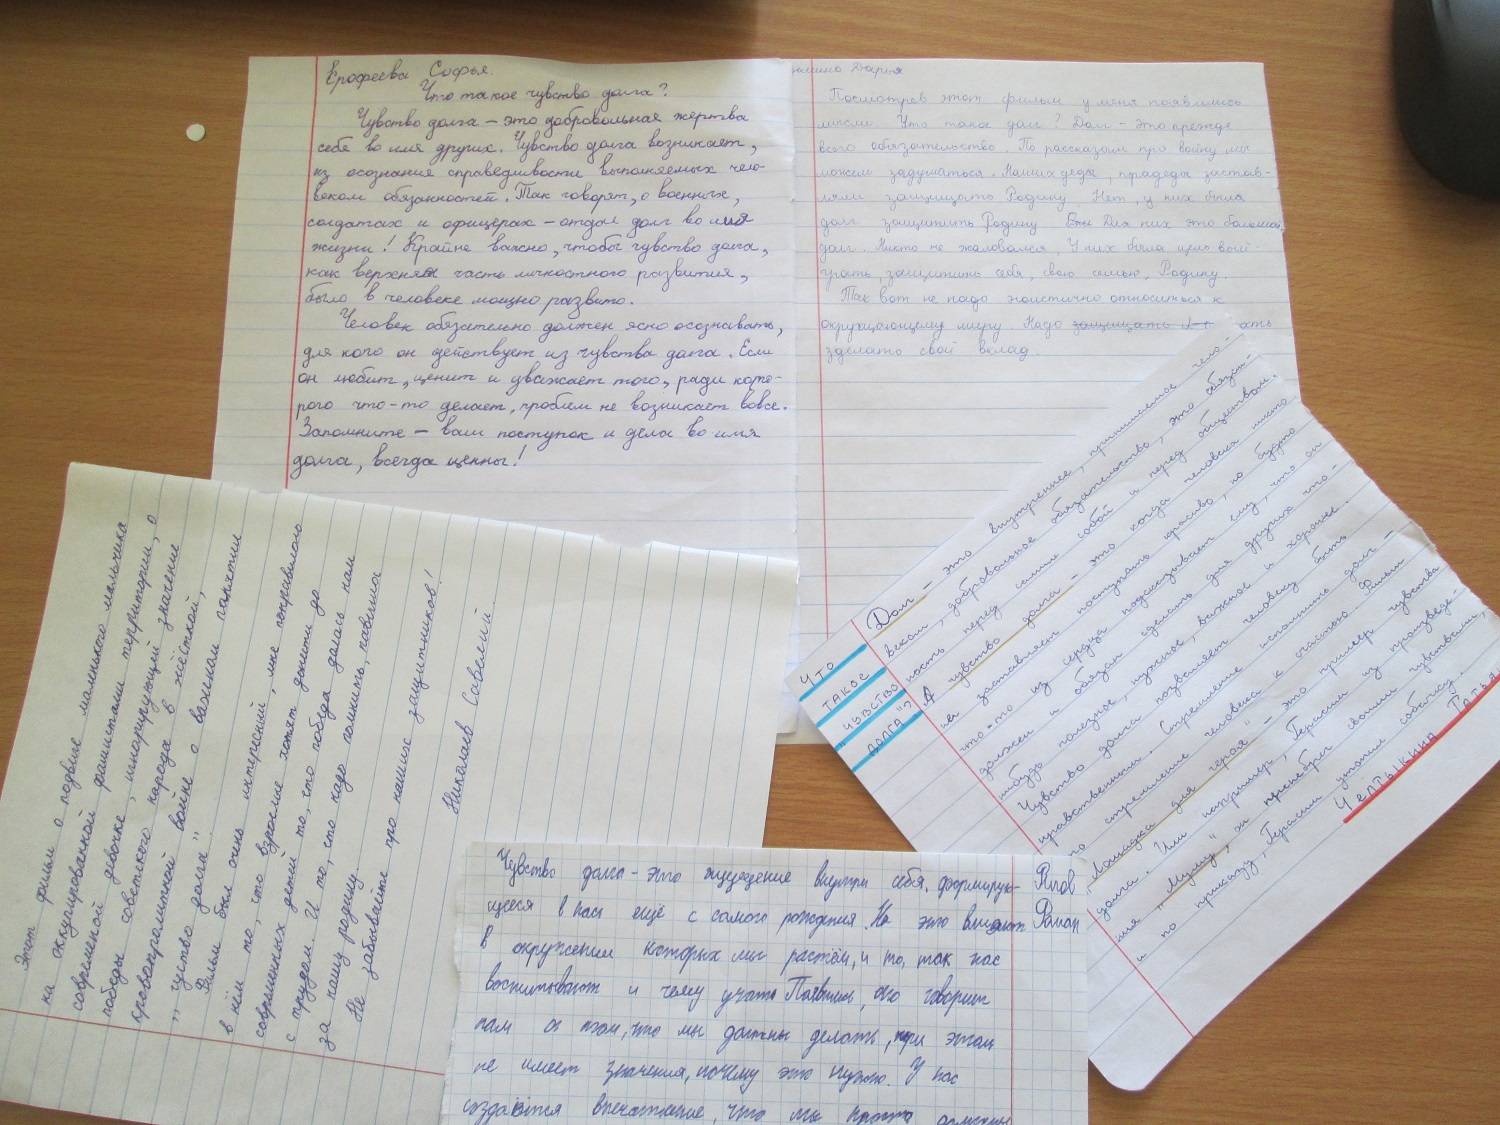 Ерофеева Софья.
Что такое чувство долга?
Чувство долга – это добровольная жертва
себя во имя других. Чувство долга возникает,
из осознания справедливости выполняемых чело-
веком обязанностей. Так говорят, о военных,
солдатах и офицерах – отдал долг во имя
жизни! Крайне важно, чтобы чувство долга,
как верхняя часть личностного развития,
было в человеке мощно развито.
Человек обязательно должен ясно осознавать,
для кого он действует из чувства долга. Если
он любит, ценит и уважает того, ради кото-
рого что-то делает, проблем не возникает вовсе.
Запомните – ваш поступок и дела во имя
долга, всегда ценны!
Дарья
Посмотрев этот фильм у меня появились
мысли. Что такое долг? Долг – это прежде
всего обязательство. По рассказам про войну мы
можем задуматься. Наших деды, прадеды застав-
ляли защищать Родину. Нет, у них была
долг защитить Родину Для них это большой
долг. Никто не жаловался. У них была цель выиг-
рать, защитить себя, свою семью, Родину.
Так вот не надо эгоистично относиться к
окружающему миру. Надо защищать
зделать свой вклад.
ЧТО
ТАКОЕ
"ЧУВСТВО
ДОЛГА"?
Долг – это внутреннее, принимаемое чело-
веком, добровольное обязательство, это обязан-
ность перед самим собой и перед обществом.
А чувство долга – это когда человека никто
не заставляет поступать красиво, но будто
что-то из сердца подсказывает ему, что он
должен и обязан сделать для других что-
нибудь полезное, нужное, важное и хорошее.
Чувство долга позволяет человеку быть
нравственным. Стремление исполнить долг –
это стремление человека к счастью. Фильм
"Лошадка для героя" – это пример чувства
долга. Или например, Герасим из произведе-
ния "Муму", он пренебрёг своими чувствами,
и по приказу, Герасим утопил собачку.
Чептыкина Татья
Этот фильм о подвиге маленького мальчика
на оккупированной фашистами территории, о
современой девочке, игнорирующей значение
победы советского народа в жёсткой,
кровопролитной войне о важном памятии
"чуство долга"
Фильм был очень интересный, мне понравилось
в нём то, что взрослые хотят донести до
современных детей то, что победа далась нам
с трудом. И то, что надо помнить, павших
за нашу родину.
Не забывайте про наших защитников!
Николаев Савелий.
Чувство долга – это ощущение внутри себя, формирую-
щееся в нас ещё с самого рождения. На это влияют
окружении которых мы растём, и то, как нас
воспитывают и чему учат. По говорит
нам о том, что мы должны делать, при этом
не имеет значения, почему это нужно. У нас
создаётся впечатление, что мы просто должны
Роман